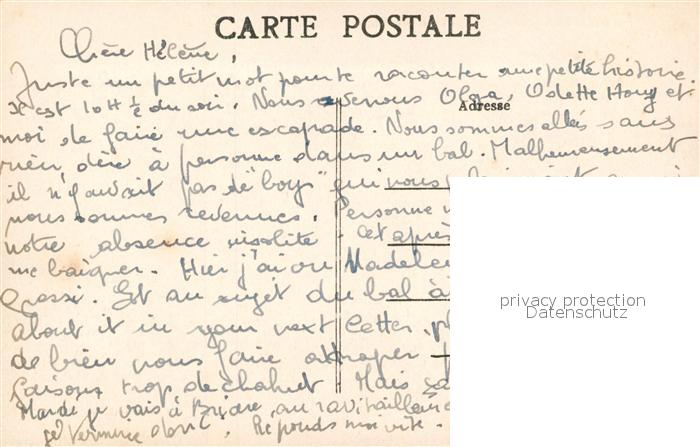 CARTE POSTALE
Chère Hélène,
Juste un petit mot pour te raconter une petite histoire.
Il est 10 H ½ du soir. Nous venons Olga, Odette Hony et
Adresse
moi de faire une escapade. Nous sommes allés sans
rien dire à personne dans un bal. Malheureusement
il n'y avait pas de "boys" qui nous
nous sommes revenues. Personne
notre absence insolite. Cet après
me baigner. Hier j'ai vu Madelei
Et au sujet du bal à
about it in your next letter.
de bien nous faire attraper
faisons trop de chahut. Mais
Mardi je vais à au
je termine donc. Réponds moi vite.
privacy protection
Datenschutz